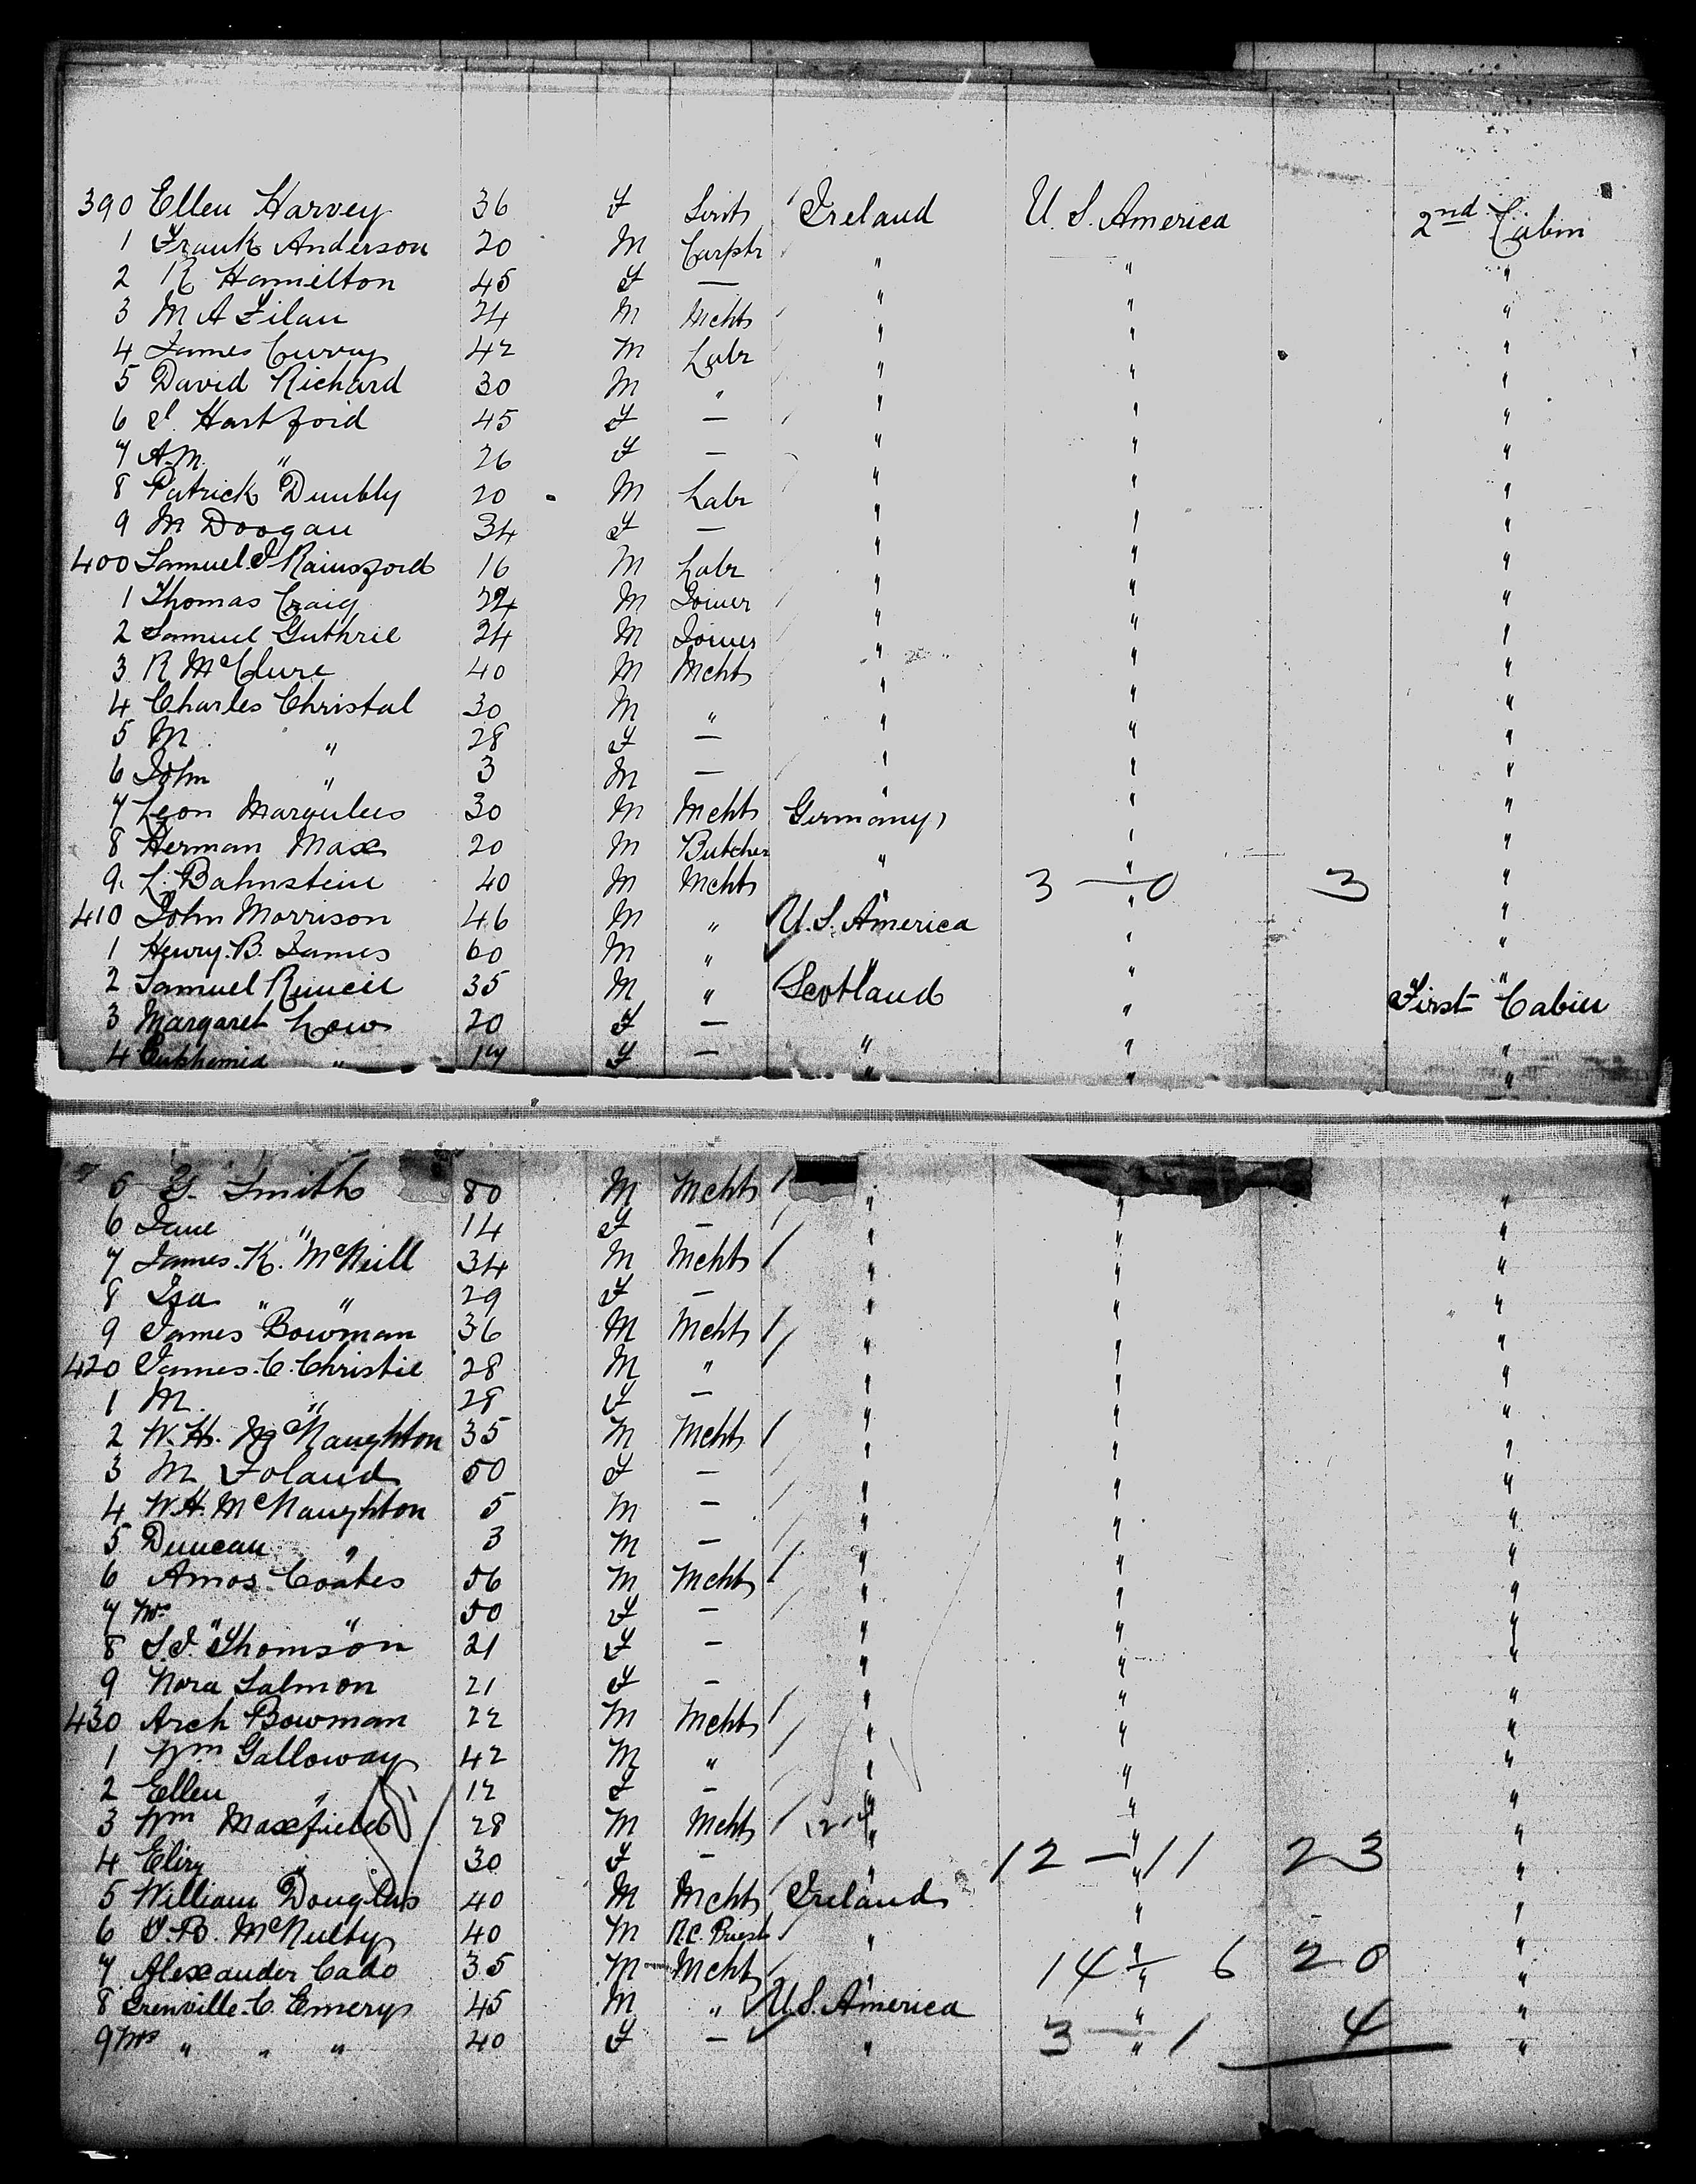 390 Ellen Harvey 36 F Servt Ireland U. S. America 2nd Cabin
1 Frank Anderson 20 M Carptr " " "
2 R Hamilton 45 F — " " "
3 M A Filan 24 M Mcht " " "
4 James Curray 42 M Labr " " "
5 David Richard 30 M " " " "
6 S. Hartford 45 F — " " "
7 A.M. " 26 F — " " "
8 Patrick Dumbly 20 M Labr " " "
9 M Doogan 34 F — " " "
400 Samuel J Rainsford 16 M Labr " " "
1 Thomas Craig 24 M Joiner " " "
2 Samuel Guthrie 24 M Joiner " " "
3 R McClure 40 M Mcht " " "
4 Charles Christal 30 M " " " "
5 M " 28 F — " " "
6 John " 3 M — " " "
7 Leon Margulies 30 M Mcht Germany " "
8 Herman Max 20 M Butcher " " "
9 L. Bahnstein 40 M Mcht " " 3 — 0 3 "
410 John Morrison 46 M " U.S. America " "
1 Henry. B. James 60 M " " " "
2 Samuel Runcie 35 M " Scotland " First Cabin
3 Margaret Low 20 F — " " "
4 Euphemia " 17 F — " " "
5 G. Smith 80 M Mcht " " "
6 Jane " 14 F — " " "
7 James. K. McNeill 34 M Mcht " " "
8 Isa " " 29 F — " " "
9 James Bowman 36 M Mcht " " "
420 James. C. Christie 28 M " " " "
1 M. " 28 F — " " "
2 W. H. McNaughton 35 M Mcht " " "
3 M Foland 50 F — " " "
4 W.H. McNaughton 5 M — " " "
5 Duncan " 3 M — " " "
6 Amos Coates 56 M Mcht " " "
7 Mrs " " 50 F — " " "
8 S.J. Thomson 21 F — " " "
9 Nora Salmon 21 F — " " "
430 Arch Bowman 22 M Mcht " " "
1 Wm Galloway 42 M " " " "
2 Ellen " 12 F — " " "
3 Wm Maxfield 28 M Mcht " " "
4 Eliz " 30 F — " " 12 — 11 23 "
5 William Douglas 40 M Mcht Ireland " "
6 J. B. McNulty 40 M R.C. Priest " " "
7 Alexander Cado 35 M Mcht " " 14 — 6 20 "
8 Grenville. C. Emery 45 M " U.S. America " "
9 Mrs " " " 40 F — " " 3 — 1 4 "